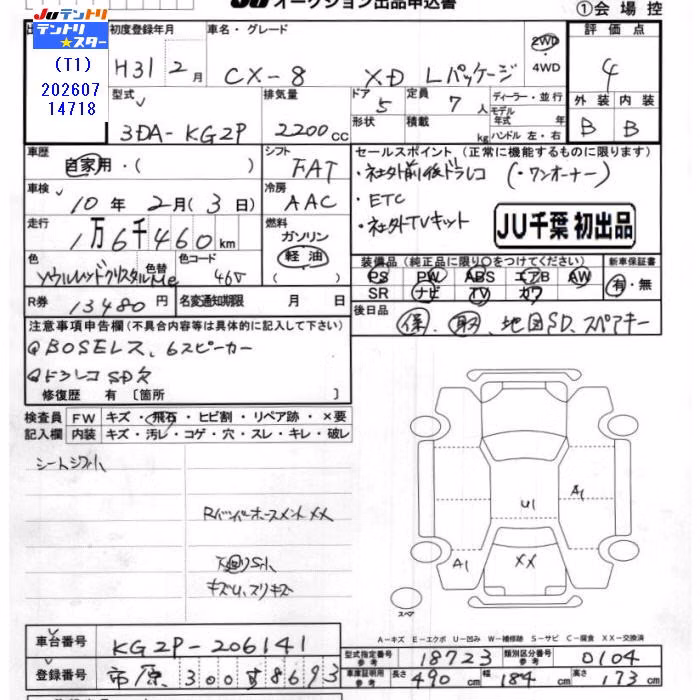 JU オークション出品申込書
①会場控
JUテントリ
テントリ★スター
(T1)
202607
14718
初度登録年月
H31 2月
車名・グレード
CX-8 XD Lパッケージ
2WD
4WD
評価点
4
型式
3DA-KG2P
排気量
2200cc
ドア
5
定員
7人
形状
積載
kg
ディーラー・並行
モデル年式 年式
ハンドル 左・右
外装 内装
B B
車歴
自家用・( )
シフト
FAT
車検
10年2月(3日)
冷房
AAC
走行
1万6千460km
燃料
ガソリン
軽油
( )
色
ソウルレッドクリスタルMe
色替
色コード
46V
R券
13480円
名変通知期限 月 日
セールスポイント(正常に機能するものに限ります)
・社外前後ドラレコ (・ワンオーナー)
・ETC
・社外TVキット
JU千葉 初出品
装備品(純正品に限り○をつけてください)
新車保証書
PS PW ABS エアB AW
SR ナビ TV カワ
有・無
後日品
保、取、地図SD、スペアキー
注意事項申告欄(不具合内容等は具体的に記入して下さい)
BOSEレス、6スピーカー
ドラレコSD欠
修復歴 有〔箇所 〕
検査員 FW キズ・飛石・ヒビ割・リペア跡・×要
記入欄 内装 キズ・汚レ・コゲ・穴・スレ・キレ・破レ
シートシワ小
XX
下廻りサビ小
キズU、スリキズ
U1
A1
A1
XX
スペア
A-キズ E-エクボ U-凹み W-補修跡 S-サビ C-腐食 XX-交換済
車台番号
KG2P-206141
登録番号
市原 300す8693
型式指定番号 参考
18723
類別区分番号 参考
0104
車庫証明用 参考
長さ 490cm 幅 184cm 高さ 173cm